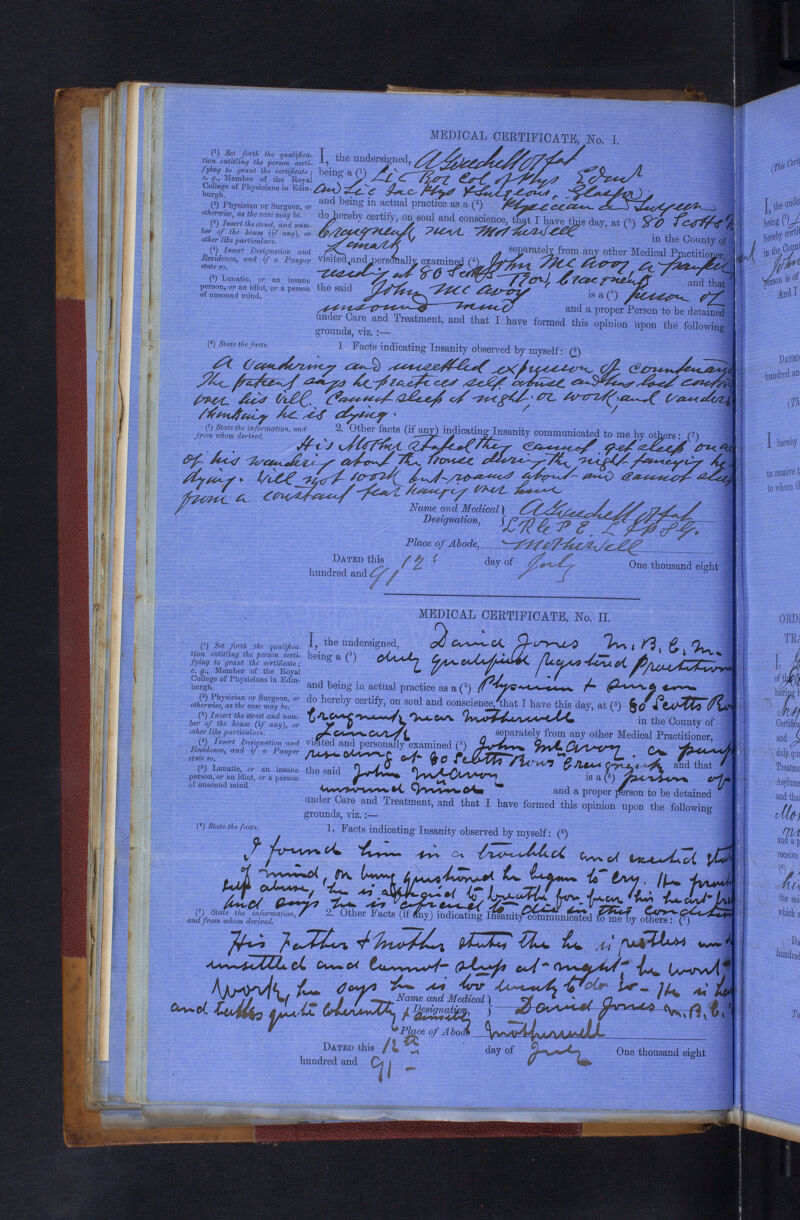 MEDICAL CERTIFICATE, No. I.
(¹) Set forth the qualifica-
tion entitling the person certi-
fying to grant the certificate;
e. g., Member of the Royal
College of Physicians in Edin-
burgh.
(²) Physician or Surgeon, or
otherwise, as the case may be.
(³) Insert the street, and num-
ber of the house (if any), or
other like particulars.
(⁴) Insert Designation and
Residence, and if a Pauper
state so.
(⁵) Lunatic, or an insane
person, or an idiot, or a person
of unsound mind.
I, the undersigned,
being a (¹) Lic Roy Col of Phys Edin
and Lic Fac Phys & Surgeons, Glasgow
and being in actual practice as a (²) Physician & Surgeon
do hereby certify, on soul and conscience, that I have this day, at (³) 80 Scotts
Craigneuk, near Motherwell in the County of
Lanark separately from any other Medical Practitioner,
visited and personally examined (⁴) John McAvoy a pauper
residing at 80 Scotts Row, Craigneuk and that
the said John McAvoy is a (⁵) person of
unsound mind and a proper Person to be detained
under Care and Treatment, and that I have formed this opinion upon the following
grounds, viz. :—
(⁶) State the facts.
1 Facts indicating Insanity observed by myself: (⁶)
A wandering and unsettled expression of countenance
The patient says he practices self abuse and has lost control
over his will. Cannot sleep at night, or work, and wanders
thinking he is dying.
(⁷) State the information, and
from whom derived.
2. Other facts (if any) indicating Insanity communicated to me by others: (⁷)
His Mother stated they cannot get sleep on a/c
of his wandering about the house during the night fancying he
dying. Will not work but roams about and cannot sleep
from a constant fear hanging over him
Name and Medical
Designation,
Place of Abode, Motherwell
DATED this 12th day of July One thousand eight
hundred and 91
MEDICAL CERTIFICATE, No. II.
(¹) Set forth the qualifica-
tion entitling the person certi-
fying to grant the certificate;
e. g., Member of the Royal
College of Physicians in Edin-
burgh.
(²) Physician or Surgeon, or
otherwise, as the case may be.
(³) Insert the street and num-
ber of the house (if any), or
other like particulars.
(⁴) Insert Designation and
Residence, and if a Pauper
state so.
(⁵) Lunatic, or an insane
person, or an idiot, or a person
of unsound mind.
I, the undersigned, David Jones M.B.C.M.
being a (¹) duly qualified registered Practitioner
and being in actual practice as a (²) Physician & Surgeon
do hereby certify, on soul and conscience, that I have this day, at (³) 80 Scotts Row
Craigneuk near Motherwell in the County of
Lanark separately from any other Medical Practitioner,
visited and personally examined (⁴) John McAvoy a pauper
residing at 80 Scotts Rows Craigneuk and that
the said John McAvoy is a (⁵) person of
unsound mind and a proper person to be detained
under Care and Treatment, and that I have formed this opinion upon the following
grounds, viz. :—
(⁶) State the facts.
1. Facts indicating Insanity observed by myself: (⁶)
I found him in a troubled and excited state
of mind, on being questioned he began to cry. He
self abuse, he is afraid to breathe for fear his heart
and says he is afraid to die in this condition
(⁷) State the information,
and from whom derived.
2. Other Facts (if any) indicating Insanity communicated to me by others: (⁷)
His Father & Mother states the he is restless and
unsettled and cannot sleep at night, he wont
work, he says he is too weak to do so - He is
and talks quite coherently & sensibly
Name and Medical
Designation, David Jones M.B.C.
Place of Abode Motherwell
DATED this 12th day of July One thousand eight
hundred and 91